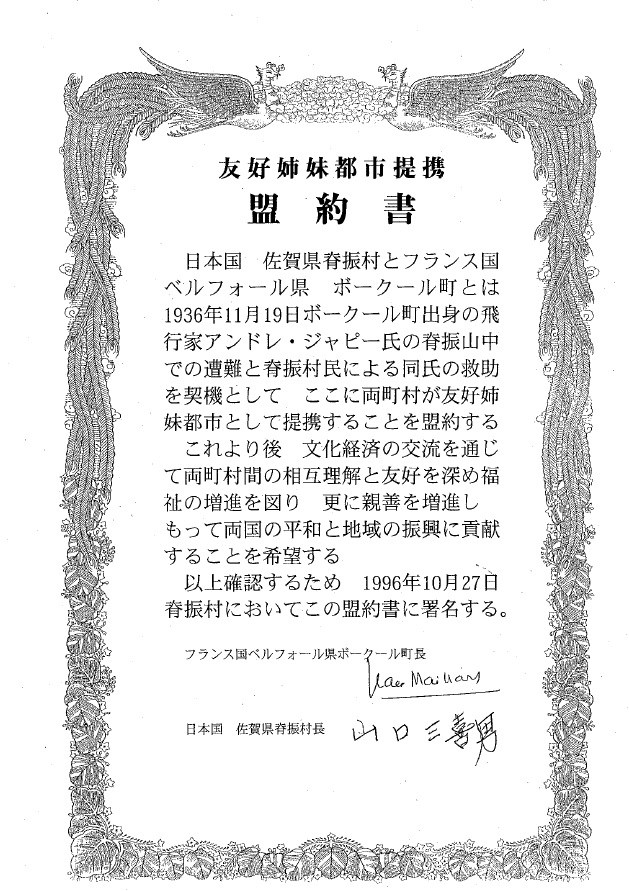 友好姉妹都市提携
盟約書
日本国　佐賀県脊振村とフランス国
ベルフォール県　ボークール町とは
1936年11月19日ボークール町出身の飛
行家アンドレ・ジャピー氏の脊振山中
での遭難と脊振村民による同氏の救助
を契機として　ここに両町村が友好姉
妹都市として提携することを盟約する
これより後　文化経済の交流を通じ
て両町村間の相互理解と友好を深め福
祉の増進を図り　更に親善を増進し
もって両国の平和と地域の振興に貢献
することを希望する
以上確認するため　1996年10月27日
脊振村においてこの盟約書に署名する。
フランス国ベルフォール県ボークール町長
日本国　佐賀県脊振村長
山口三喜男